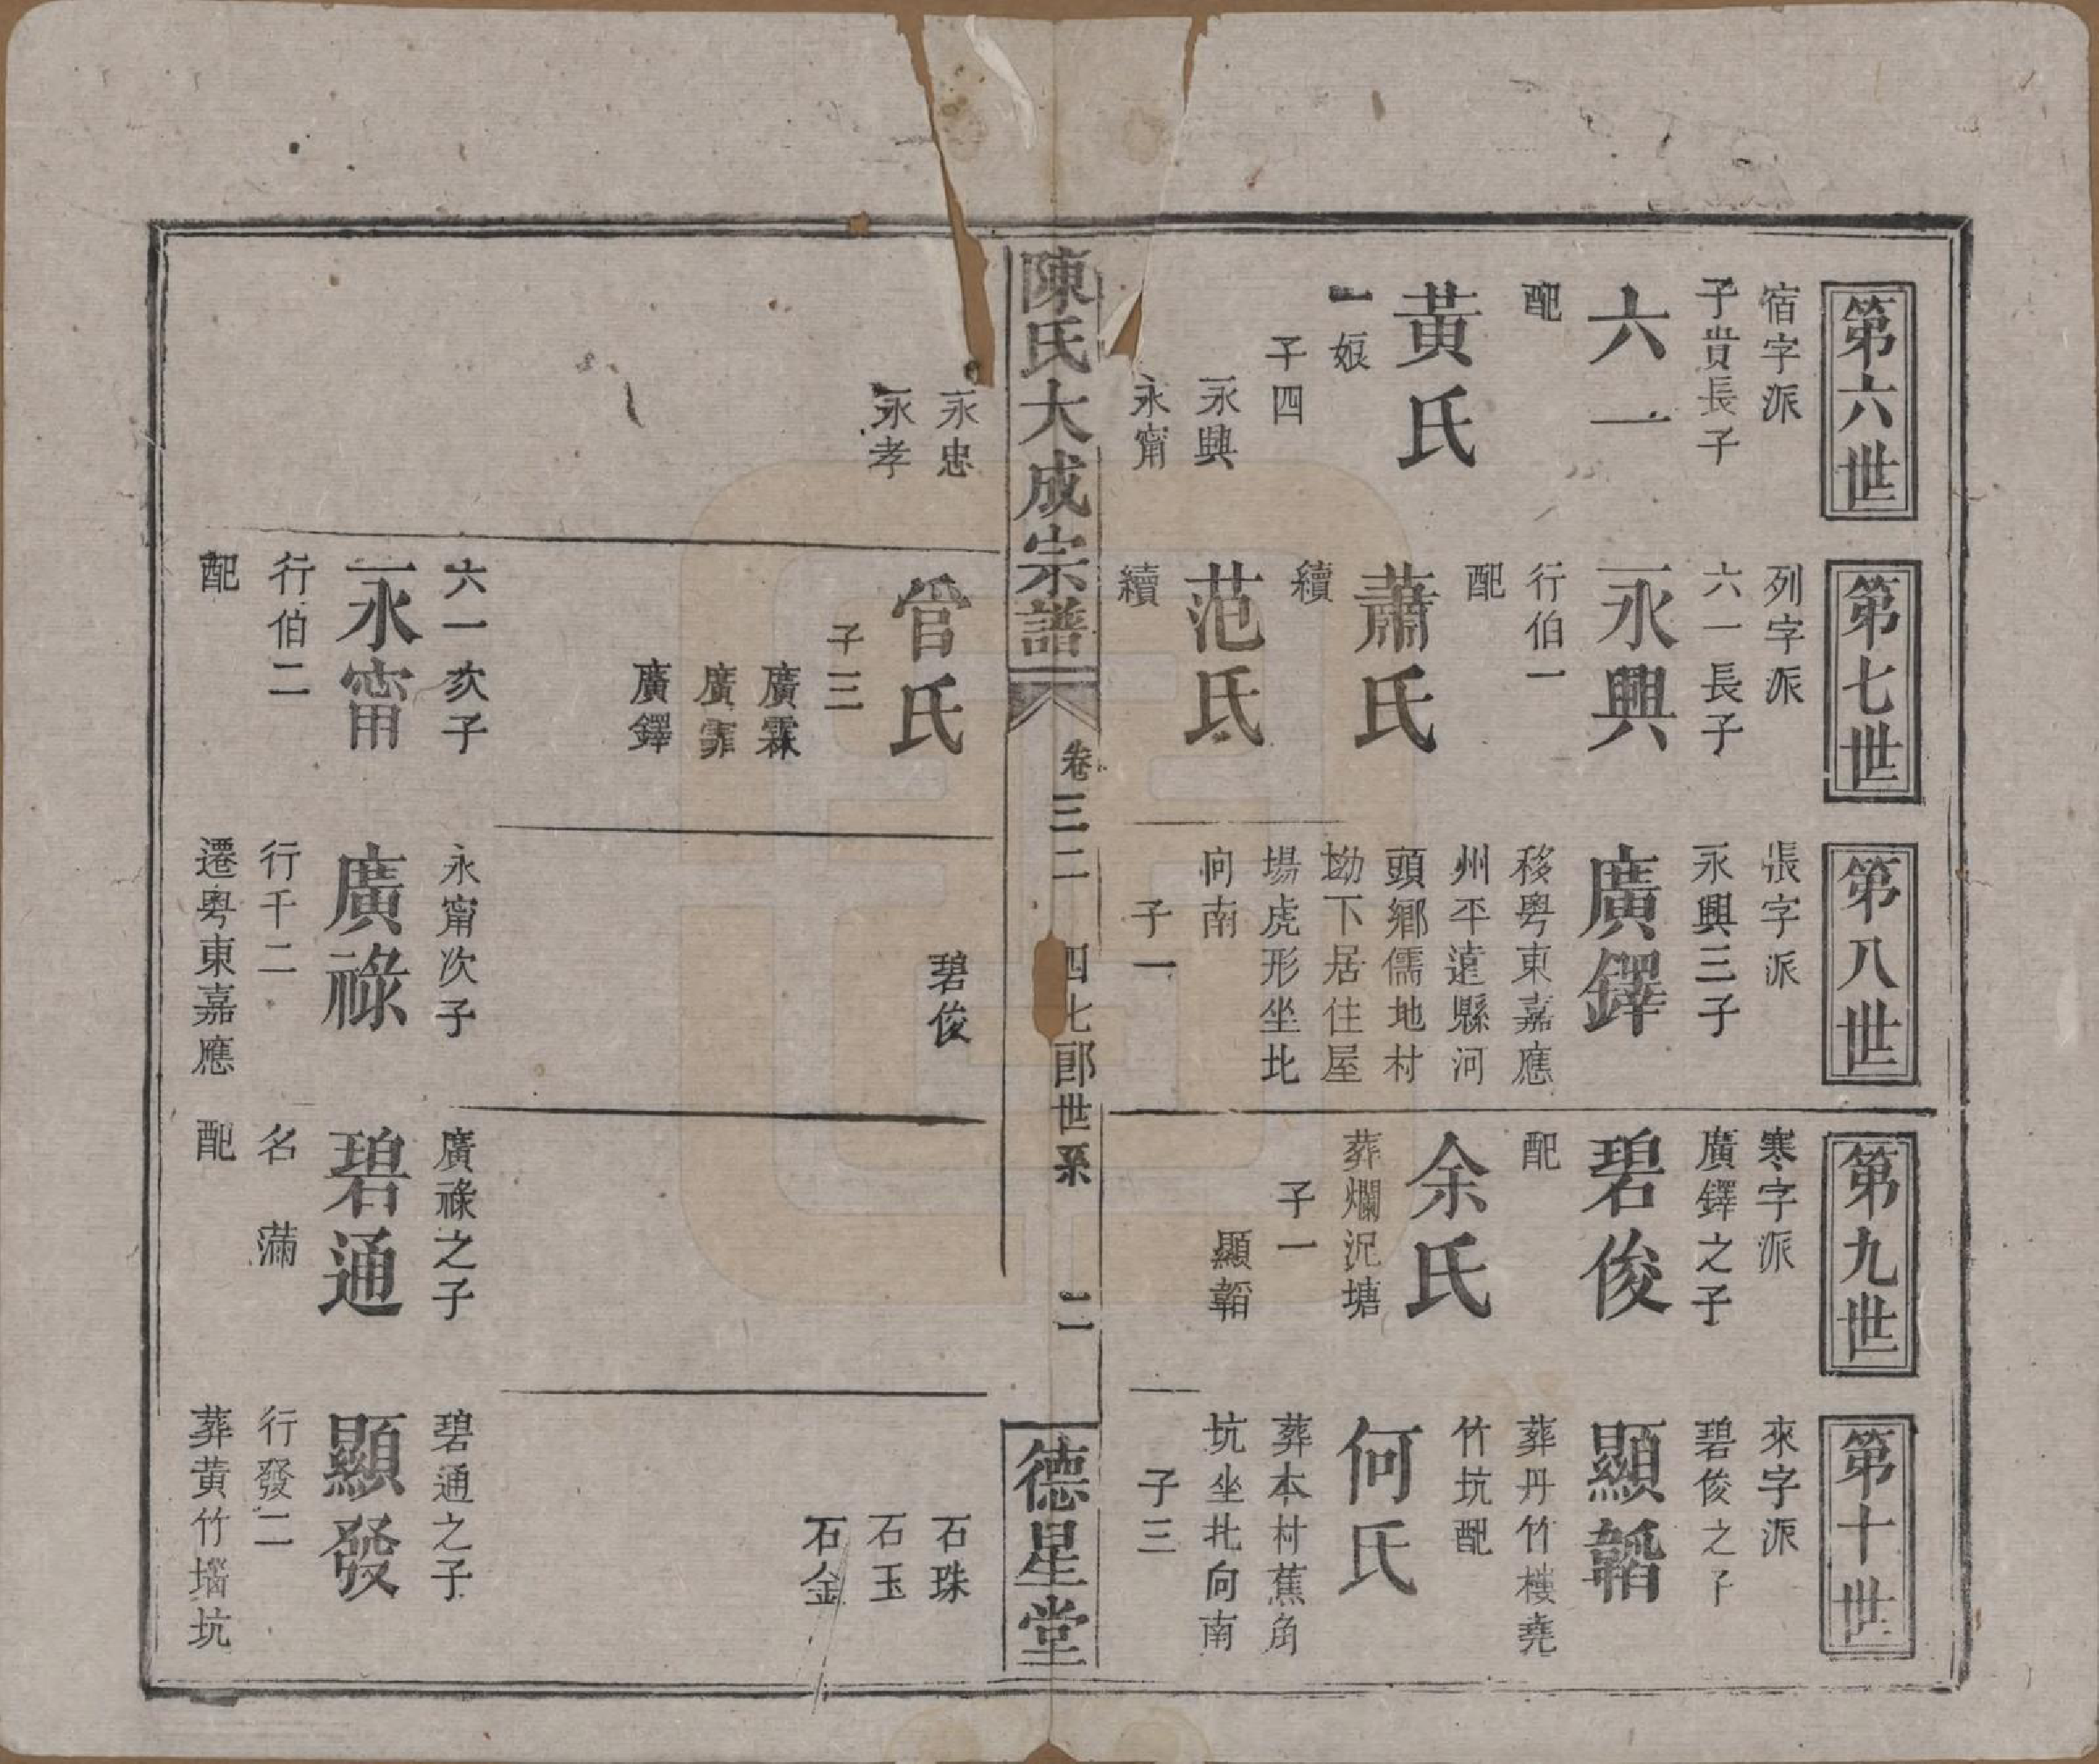 第六世
宿字派
子貴長子
六一
配
黃氏
一娘
子四
永興
永甯
第七世
列字派
六一長子
永興
行伯一
配
蕭氏
續
范氏
續
第八世
張字派
永興三子
廣鐸
移粵東嘉應
州平遠縣河
頭鄉儒地村
坳下居住屋
場虎形坐北
向南
子一
第九世
寒字派
廣鐸之子
碧俊
配
余氏
葬爛泥塘
子一
顯韜
第十世
來字派
碧俊之子
顯韜
葬丹竹樓堯
竹坑配
何氏
葬本村蕉角
坑坐北向南
子三
陳氏大成宗譜
卷三二 四七郎世系 二
德星堂
永忠
永孝
管氏
子三
廣霖
廣霏
廣鐸
六一次子
永甯
行伯二
配
碧俊
永甯次子
廣祿
行千二
遷粵東嘉應
廣祿之子
碧通
名 滿
配
石珠
石玉
石金
碧通之子
顯發
行發二
葬黄竹墖坑